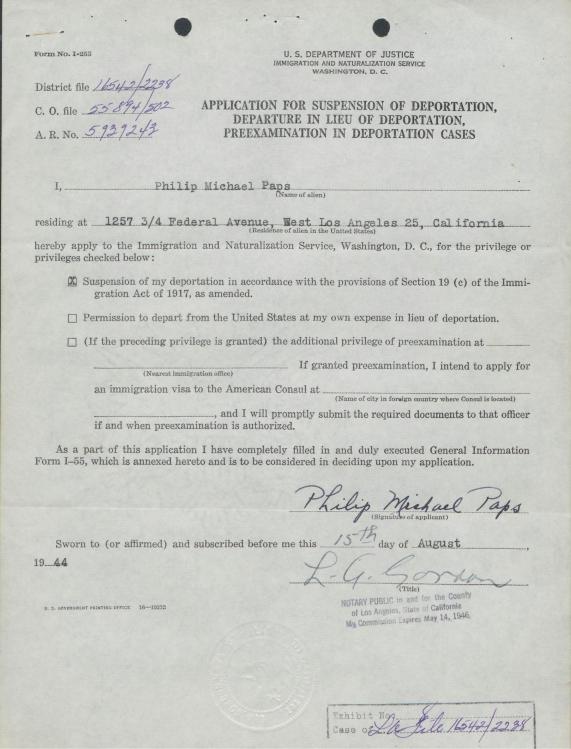 Form No. I-255
U. S. DEPARTMENT OF JUSTICE
IMMIGRATION AND NATURALIZATION SERVICE
WASHINGTON, D. C.
District file 16542/2238
C. O. file 55894/502
A. R. No. 5939243
APPLICATION FOR SUSPENSION OF DEPORTATION,
DEPARTURE IN LIEU OF DEPORTATION,
PREEXAMINATION IN DEPORTATION CASES
I, Philip Michael Paps
(Name of alien)
residing at 1257 3/4 Federal Avenue, West Los Angeles 25, California
(Residence of alien in the United States)
hereby apply to the Immigration and Naturalization Service, Washington, D. C., for the privilege or
privileges checked below:
X Suspension of my deportation in accordance with the provisions of Section 19 (c) of the Immi-
gration Act of 1917, as amended.
Permission to depart from the United States at my own expense in lieu of deportation.
(If the preceding privilege is granted) the additional privilege of preexamination at
If granted preexamination, I intend to apply for
(Nearest immigration office)
an immigration visa to the American Consul at
(Name of city in foreign country where Consul is located)
, and I will promptly submit the required documents to that officer
if and when preexamination is authorized.
As a part of this application I have completely filled in and duly executed General Information
Form I-55, which is annexed hereto and is to be considered in deciding upon my application.
Philip Michael Paps
(Signature of applicant)
Sworn to (or affirmed) and subscribed before me this 15th day of August,
19 44
L. G. Gordon
(Title)
NOTARY PUBLIC in and for the County
of Los Angeles, State of California
My Commission Expires May 14, 1946.
U. S. GOVERNMENT PRINTING OFFICE 16-10232
Exhibit No.
Case of LA File 16542/2238